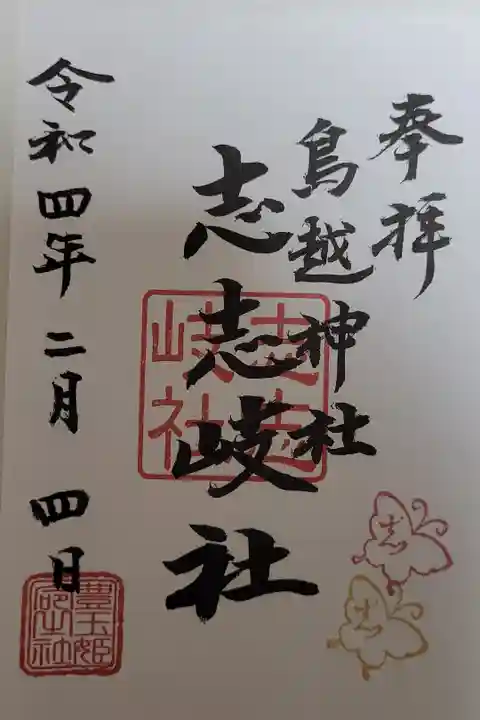 奉拝
鳥越神社
志志岐社
志志
岐社
令和四年二月 四日
豊玉姫
志
志